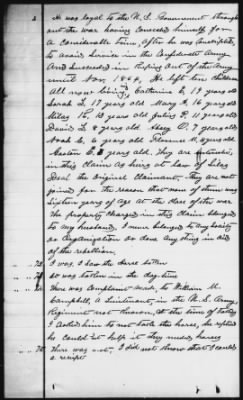 He was loyal to the U.S. Government through
out the war having concealed himself for
a considerable time, after he was conscripted,
to avoid service in the Confederate Army
And succeeded in keeping out of the Army
until Nov. 1864. He left ten children
all now living Catherine 19 years old
Sarah L. 17 years old Mary 16 years old
13 years old P. 11 years old
David L. 8 years old 7 years old
Noah C. 6 years old M. years old
years old. They are
in this claim as heirs at law of
the original Claimant, They are not
joined for the reason that none of them was
sixteen years of age at the close of the war
The property charged in this claim belonged
to my husband, I never belonged to any society
or Organization or done anything in aid
of the rebellion.
I was, I saw the horse taken
It was taken in the day time
There was complaint made, to William M.
Campbell, a Lieutenant, in the U.S. Army,
Regiment not known, at the time of taking
I asked him to not take the horse, he replied
he could not help it they needed horses
There was not, I did not know that I could
a receipt